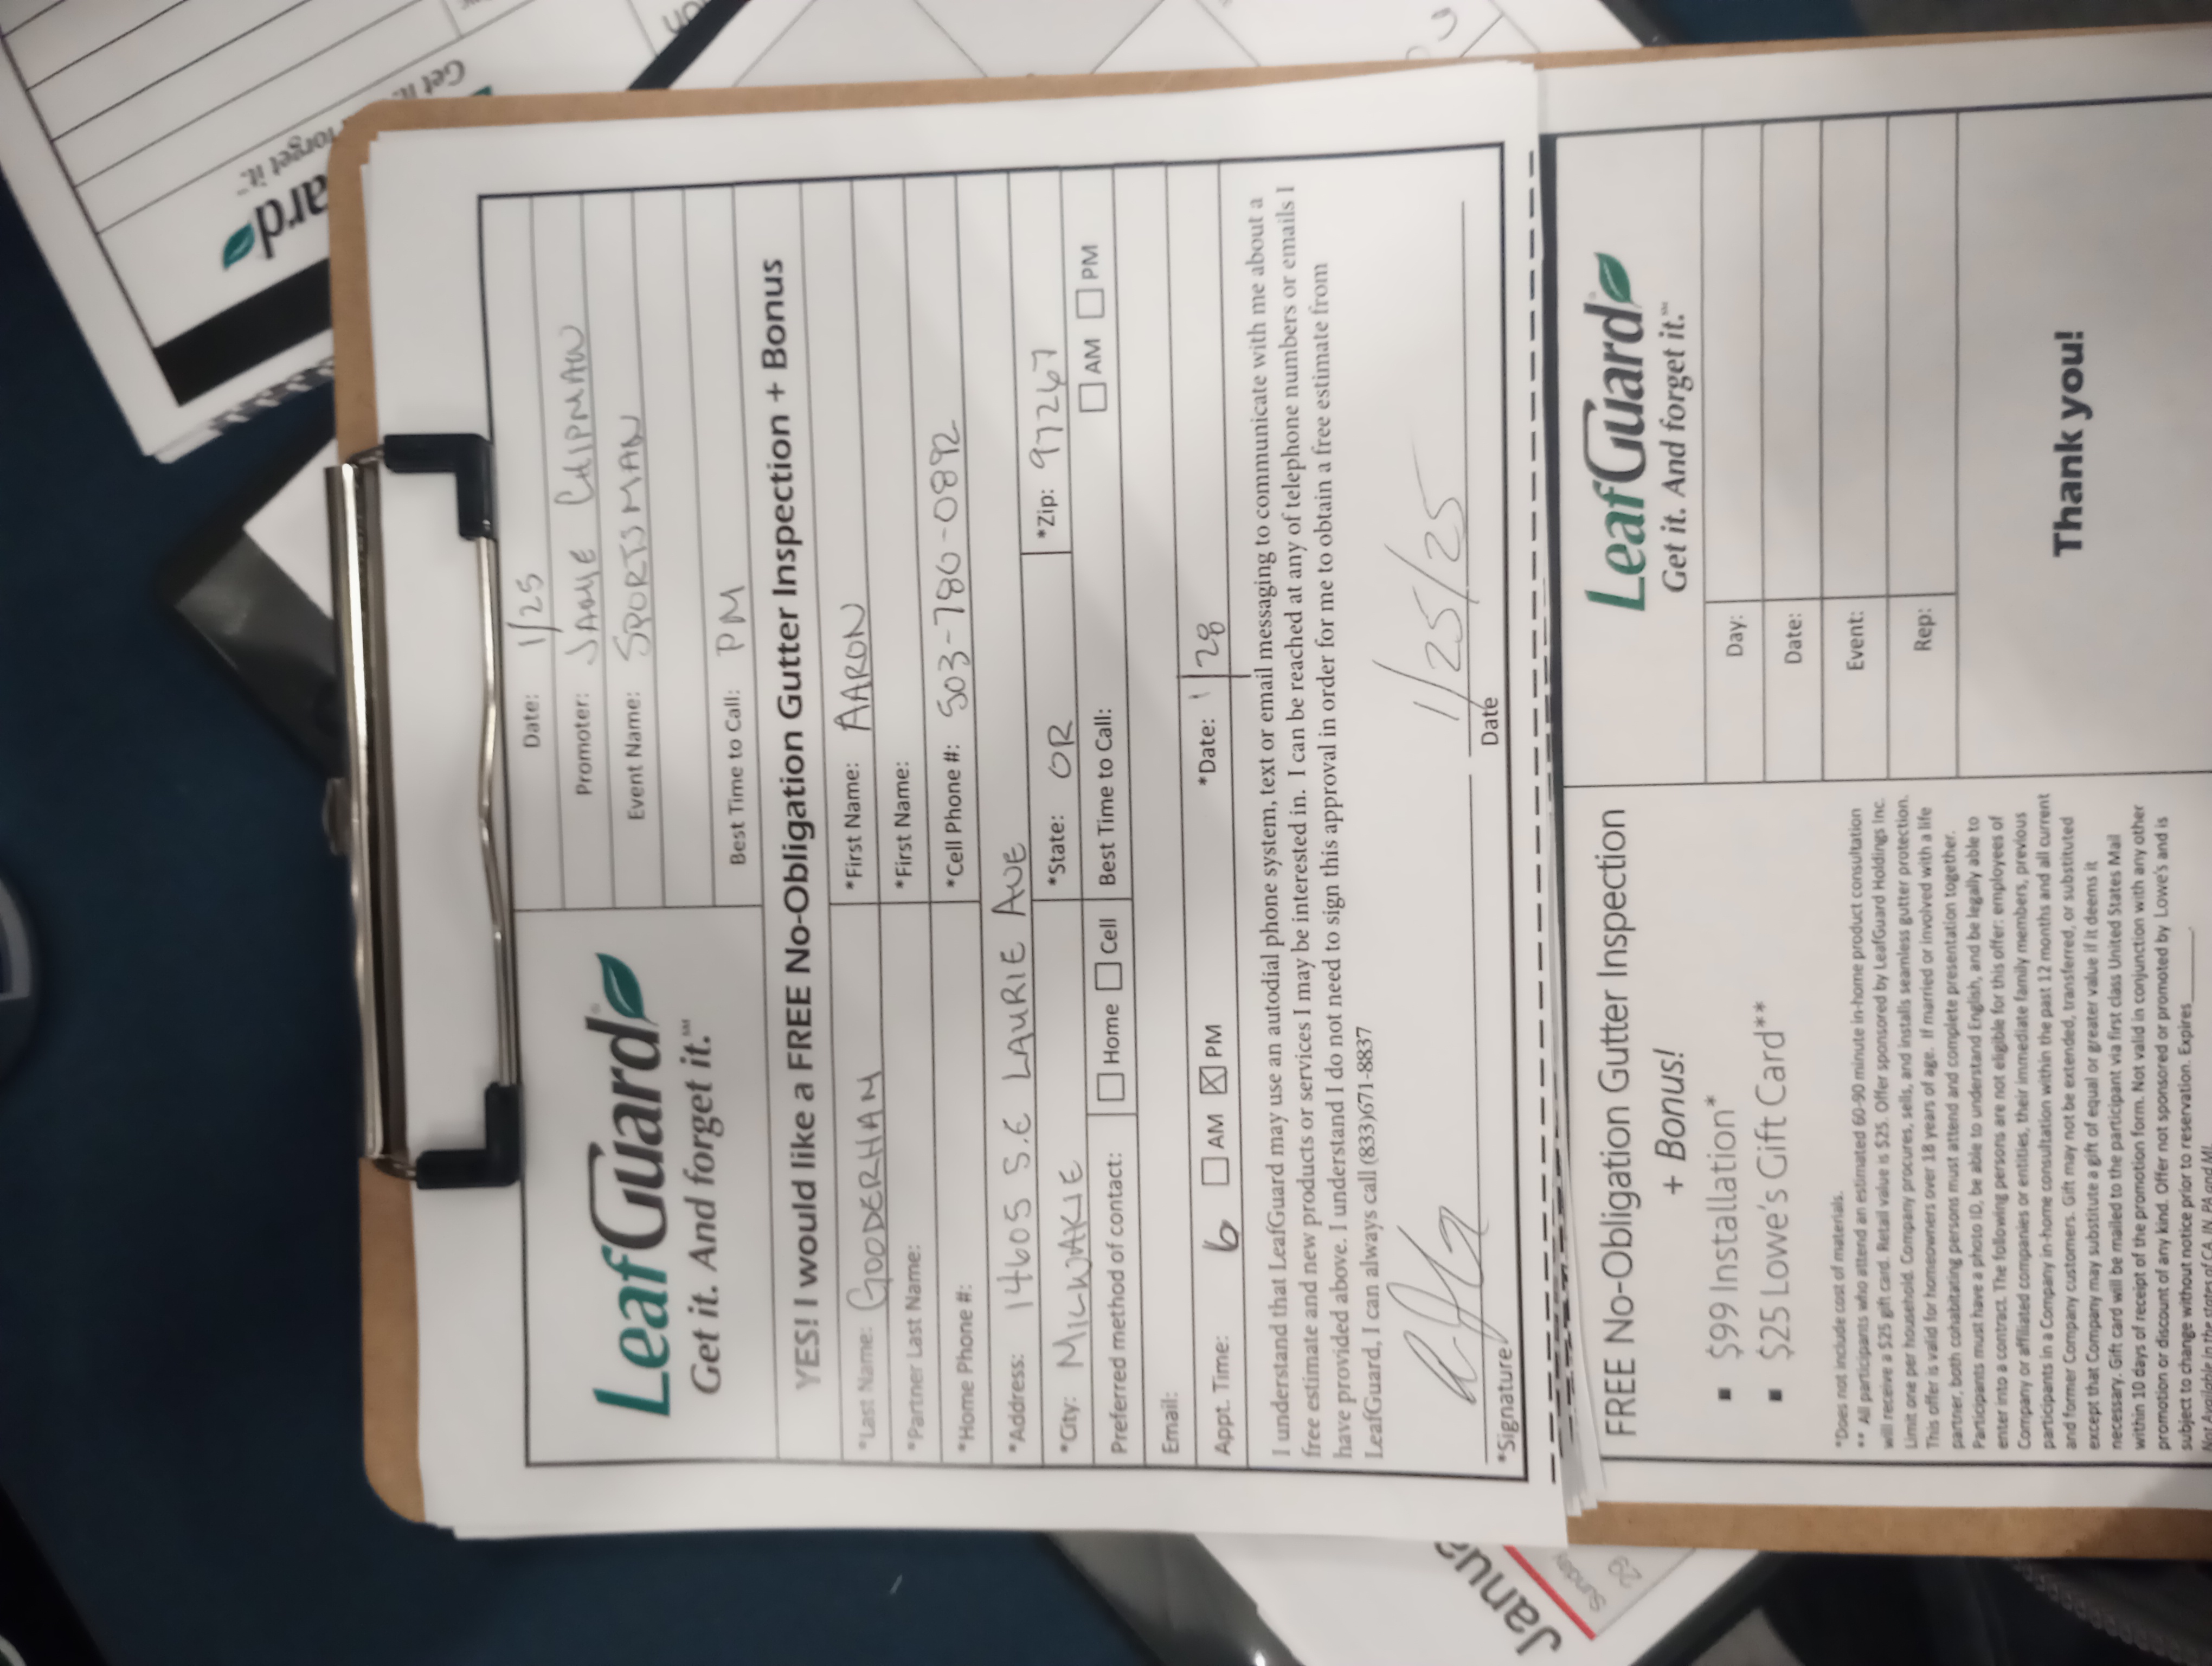 ard
Get it.
forget it.™
LeafGuard®
Get it. And forget it.℠
Date: 1/25
Promoter: JAQUE CHIPMAN
Event Name: SPORTSMAN
Best Time to Call: PM
YES! I would like a FREE No-Obligation Gutter Inspection + Bonus
*Last Name: GOODERHAM *First Name: AARON
*Partner Last Name: *First Name:
*Home Phone #: *Cell Phone #: 503-780-0892
*Address: 14605 S.E LAURIE AVE
*City: MILWAKIE *State: OR *Zip: 97267
Preferred method of contact: Home Cell Best Time to Call: AM PM
Email:
Appt. Time: 6 AM PM *Date: 1/28
I understand that LeafGuard may use an autodial phone system, text or email messaging to communicate with me about a
free estimate and new products or services I may be interested in. I can be reached at any of telephone numbers or emails I
have provided above. I understand I do not need to sign this approval in order for me to obtain a free estimate from
LeafGuard, I can always call (833)671-8837
1/25/25
*Signature Date
Janua
Sunday
29
FREE No-Obligation Gutter Inspection
+ Bonus!
▪ $99 Installation*
▪ $25 Lowe's Gift Card**
*Does not include cost of materials.
** All participants who attend an estimated 60-90 minute in-home product consultation
will receive a $25 gift card. Retail value is $25. Offer sponsored by LeafGuard Holdings Inc.
Limit one per household. Company procures, sells, and installs seamless gutter protection.
This offer is valid for homeowners over 18 years of age. If married or involved with a life
partner, both cohabitating persons must attend and complete presentation together.
Participants must have a photo ID, be able to understand English, and be legally able to
enter into a contract. The following persons are not eligible for this offer: employees of
Company or affiliated companies or entities, their immediate family members, previous
participants in a Company in-home consultation within the past 12 months and all current
and former Company customers. Gift may not be extended, transferred, or substituted
except that Company may substitute a gift of equal or greater value if it deems it
necessary. Gift card will be mailed to the participant via first class United States Mail
within 10 days of receipt of the promotion form. Not valid in conjunction with any other
promotion or discount of any kind. Offer not sponsored or promoted by Lowe's and is
subject to change without notice prior to reservation. Expires________.
Not Available in the states of CA, IN, PA and MI.
LeafGuard®
Get it. And forget it.℠
Day:
Date:
Event:
Rep:
Thank you!